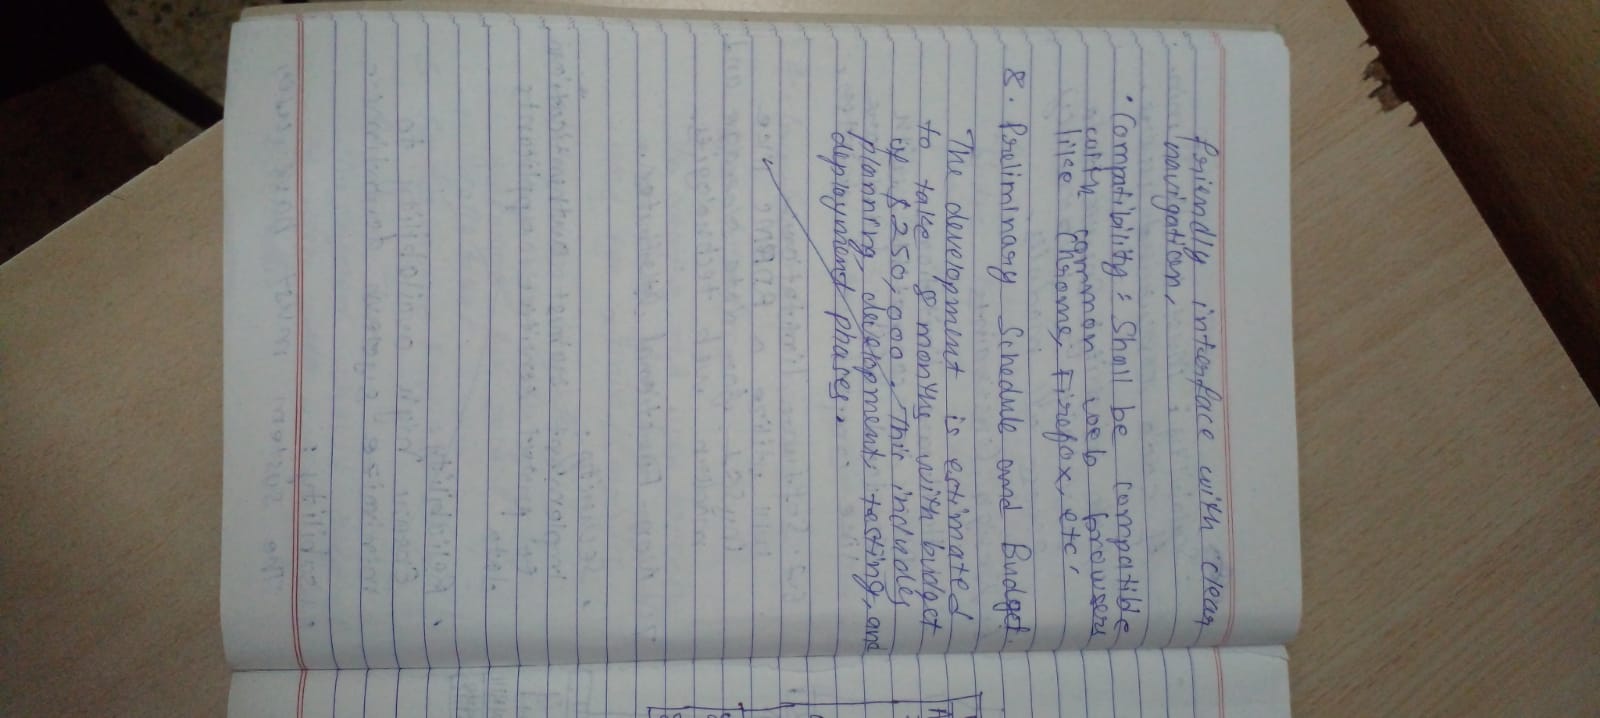 friendly interface with clear
navigation.
• Compatibility : Shall be compatible
with common web browsers
like chrome, Firefox, etc.
8. Preliminary Schedule and Budget.
The development is estimated
to take 8 months with budget
is $250,000. This includes
planning, development, testing, and
deployment phases.